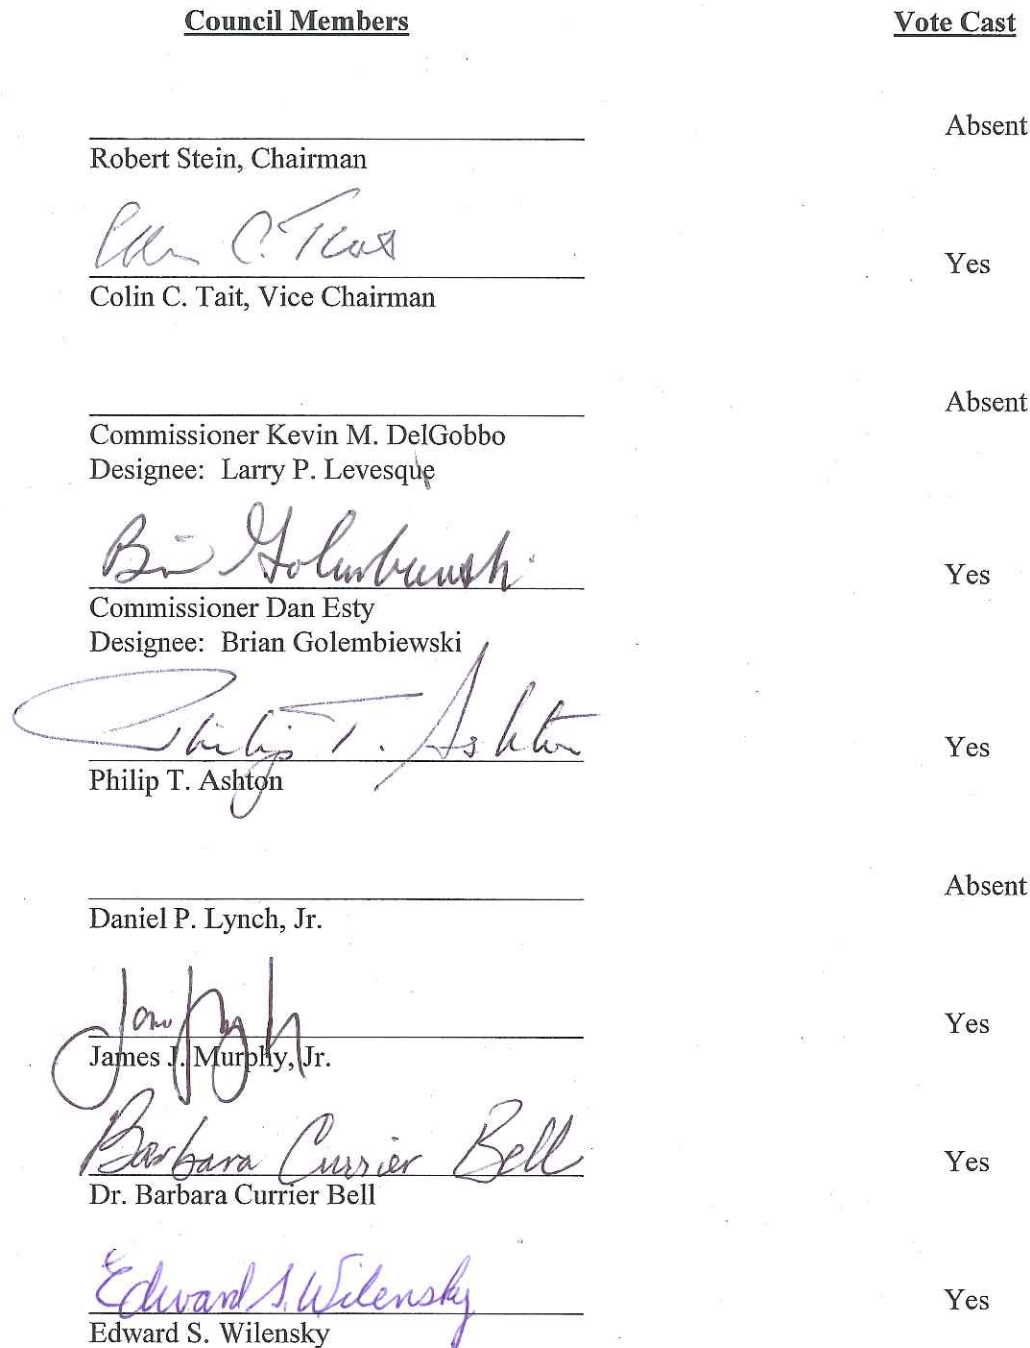 Council Members Vote Cast
Absent
Robert Stein, Chairman
Colin C. Tait
Yes
Colin C. Tait, Vice Chairman
Absent
Commissioner Kevin M. DelGobbo
Designee: Larry P. Levesque
Brian Golembiewski
Yes
Commissioner Dan Esty
Designee: Brian Golembiewski
Philip T. Ashton
Yes
Philip T. Ashton
Absent
Daniel P. Lynch, Jr.
Yes
James J. Murphy, Jr.
Barbara Currier Bell
Yes
Dr. Barbara Currier Bell
Edward S. Wilensky
Yes
Edward S. Wilensky